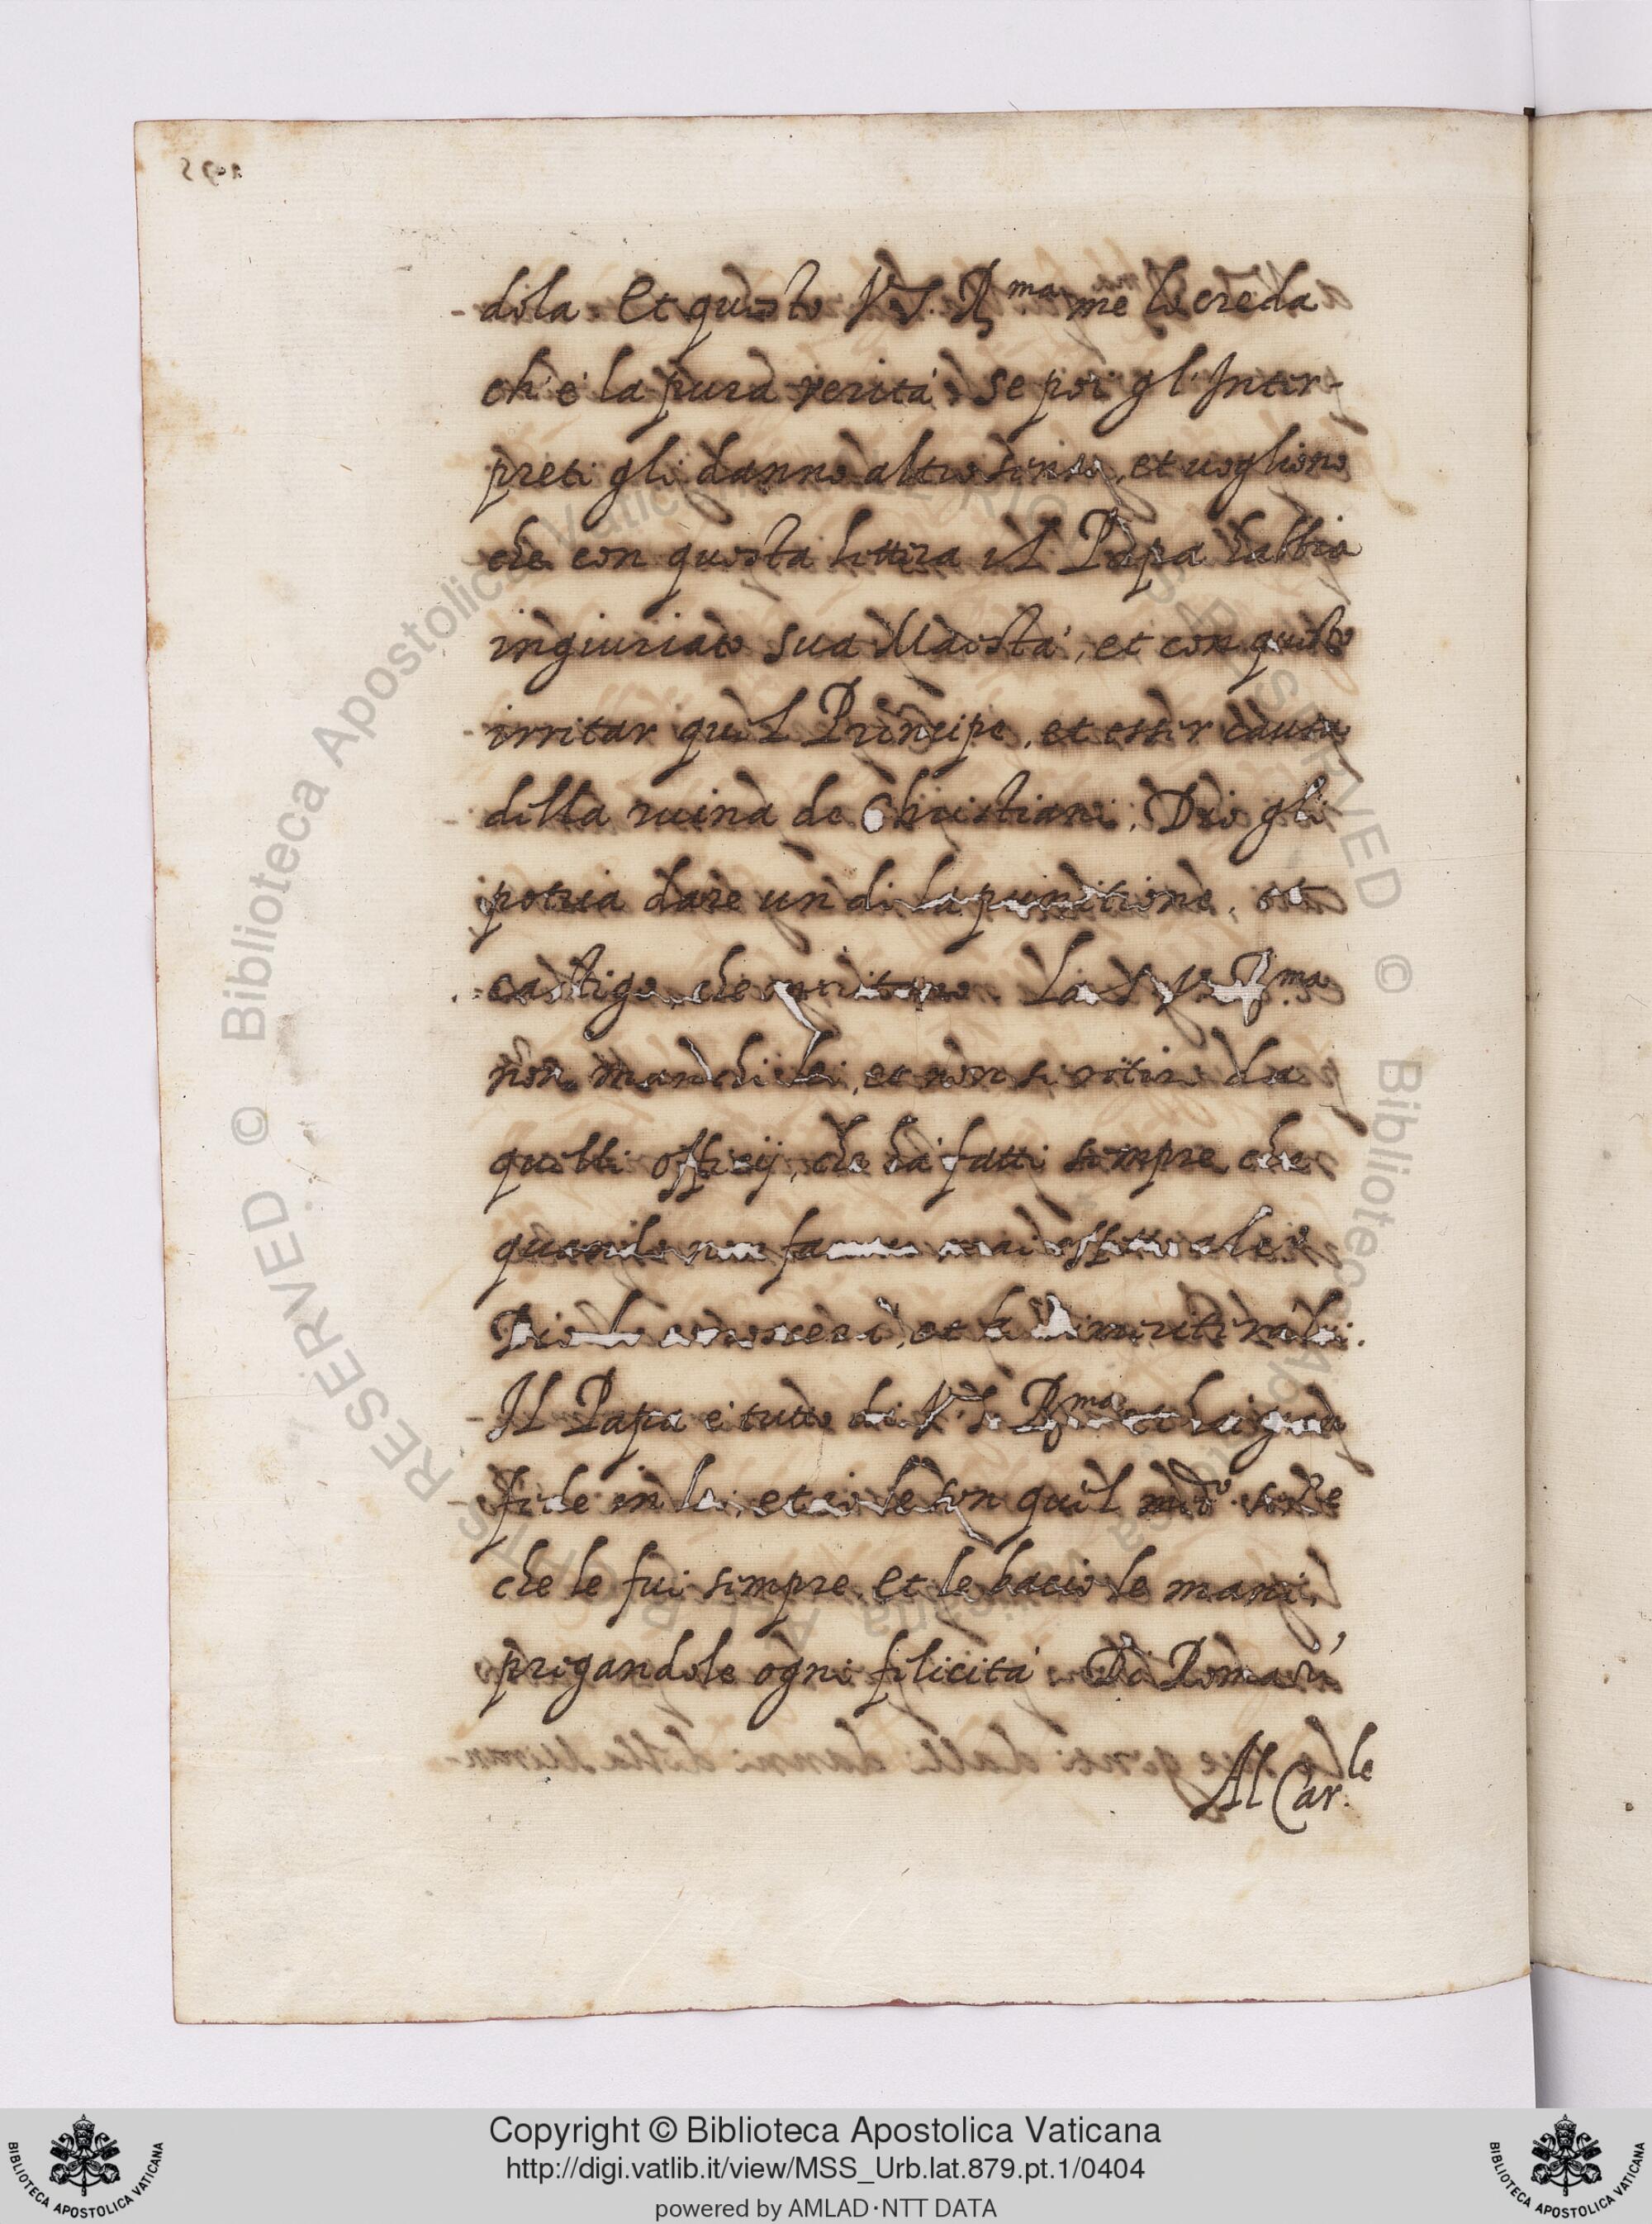 dola. Et questo V.S. R.ma me lo creda
ch'è la pura verità. Se poi gl'Inter-
preti gli danno altro senso, et uogliono
che con questa lettera il Papa habbia
ingiuriato sua Maestà, et con questo
irritar quel Principe, et esser causa
della ruina de Christiani. Dio gli
potria dare un dì la punitione, et
castigo, che meritano. La S. V. R.ma
non manchi lei, et non si retiri da
quelli officij, che ha fatti sempre che
quando non facciano mai effetto alcuno
Dio lo conoscerà, et lo rimeriterà lui.
Il Papa è tutto di V.S. R.ma et ha gran
fede in lei, et io le son quel med.o ser.re
che le fui sempre. Et le bacio le mani,
pregandole ogni felicità. Di Roma
Al Car.le
Copyright © Biblioteca Apostolica Vaticana
http://digi.vatlib.it/view/MSS_Urb.lat.879.pt.1/0404
powered by AMLAD·NTT DATA
BIBLIOTECA APOSTOLICA VATICANA
BIBLIOTECA APOSTOLICA VATICANA